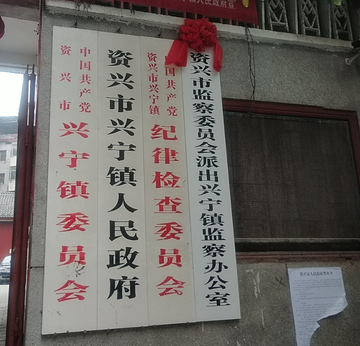 中国共产党
资兴市
兴宁镇委员会
资兴市兴宁镇人民政府
中国共产党
资兴市兴宁镇
纪律检查委员会
资兴市监察委员会派出兴宁镇监察办公室